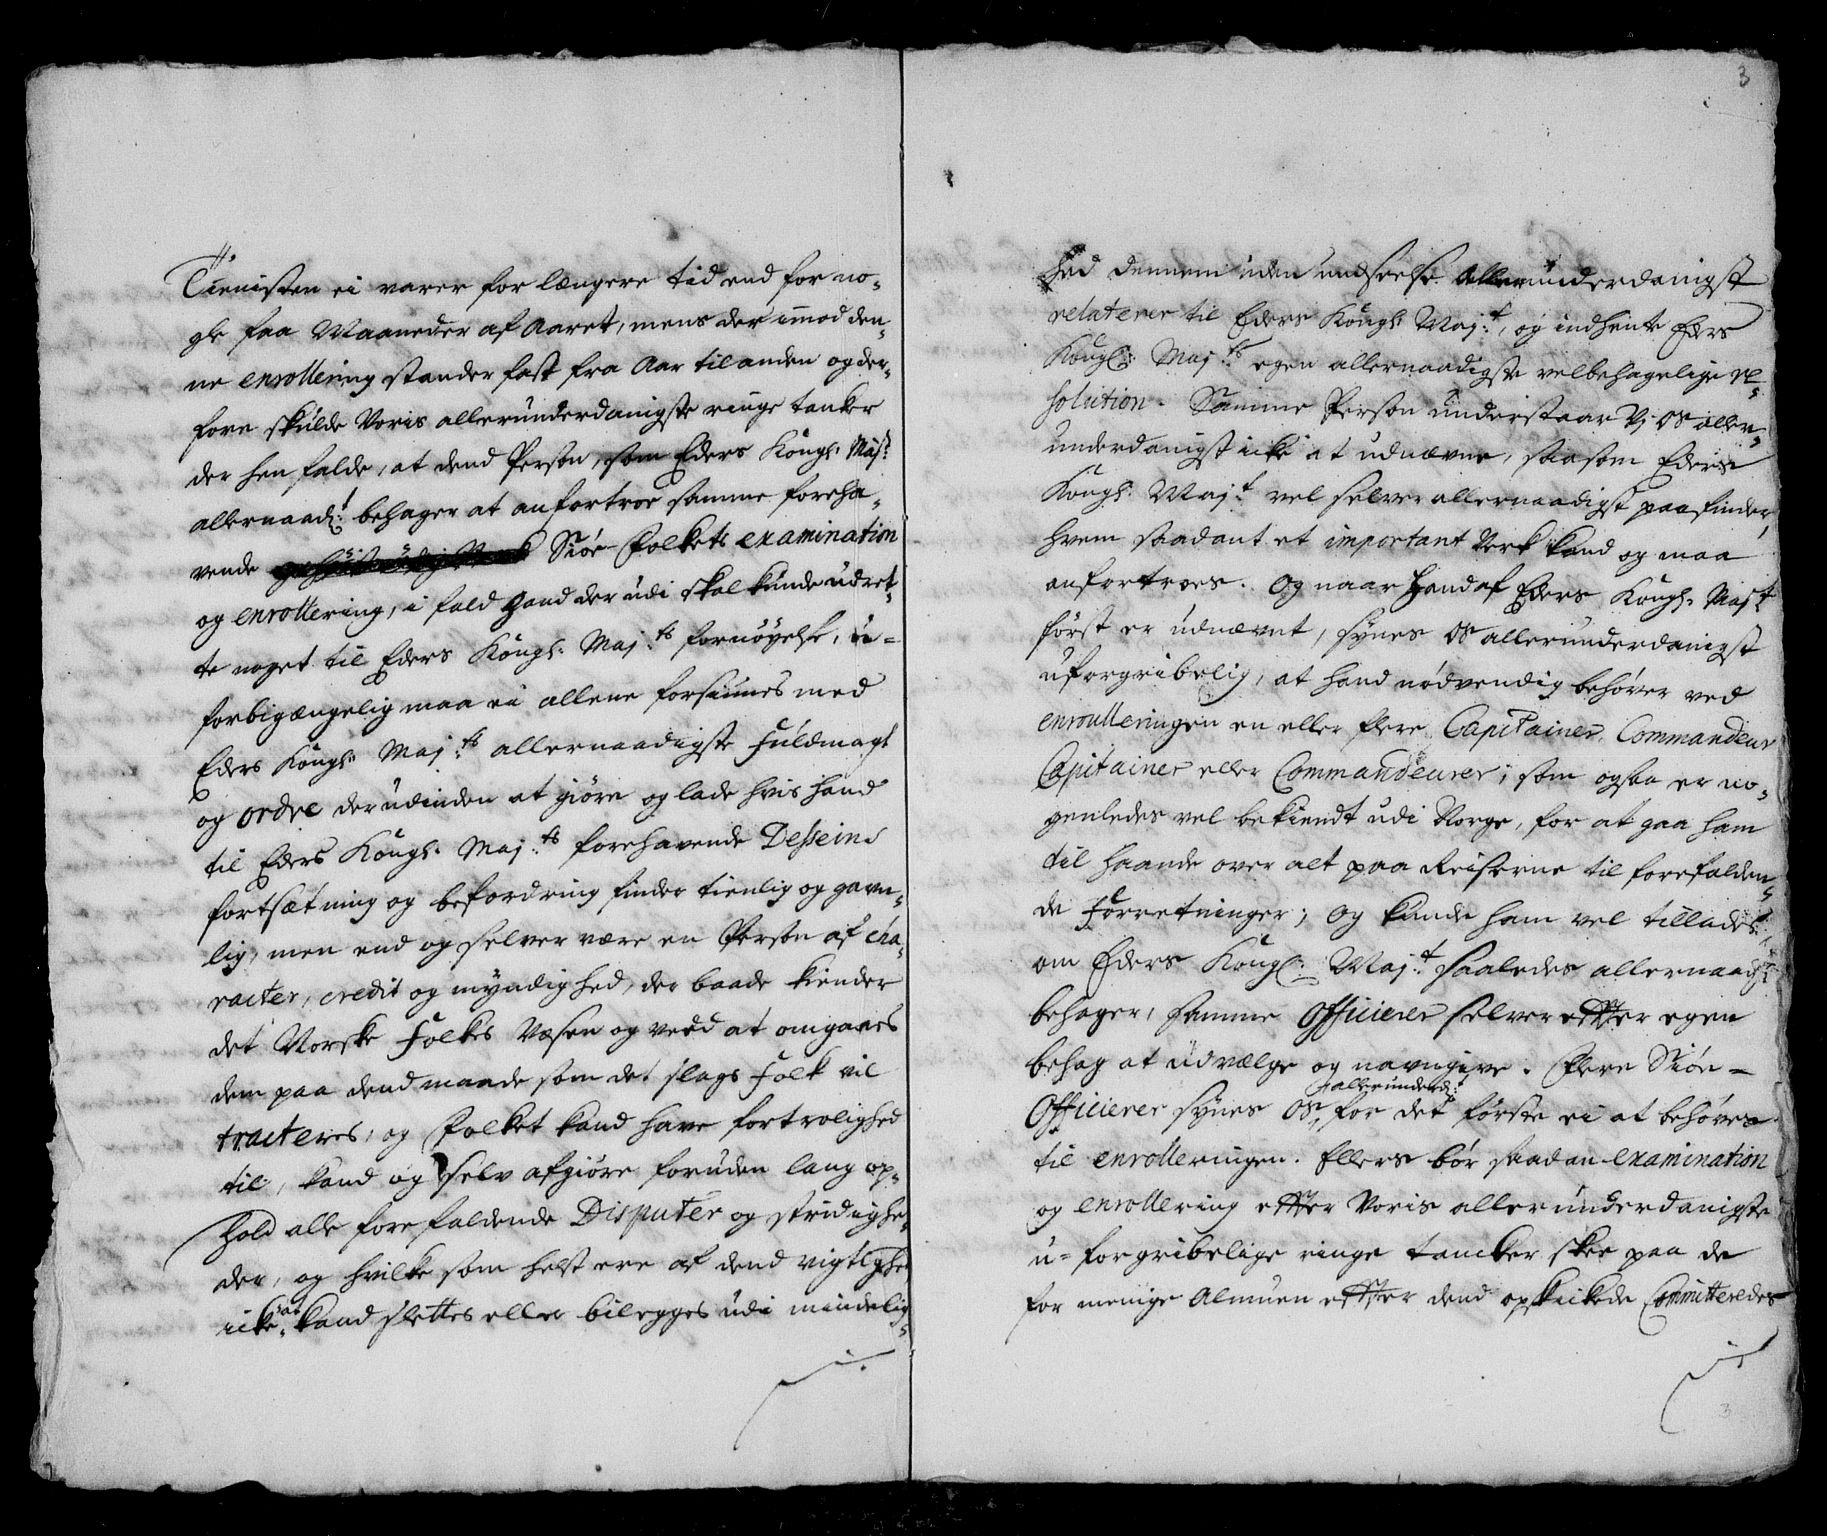 Tienisten ei varer for længere tid end for no-
gle faa Maaneder af Aaret, mens der imod den-
ne enrollering stander fast fra Aar til anden og der-
fore skulde Voris allerunderdanigste ringe tanker
der hen falde, at dend Person, som Eders Kongl: Maj:t
allernaad:t behager at anfortroe samme foreha-
vende Siøe-Folkets examination
og enrollering, i fald Hand der udi skal kunde udret-
te noget til Eders Kongl: Maj:ts fornøyelse, u-
forbigængelig maa ei allene forsiunes med
Eders Kongl: Maj:ts allernaadigste Fuldmagt
og ordre derudinden at giøre og lade hvis hand
til Eders Kongl: Maj:ts forehavende Desseins
fortsætning og befordring finder tienlig og gavn-
lig, men end og selver være en Person af cha-
racter, credit og myndighed, der baade kiender
det Norske Folkes Væsen og veed at omgaaes
dem paa dend maade som det slags Folk vil
tracteres, og Folket kand have fortrolighed
til, kand og selv afgiøre foruden lang op-
hold alle forefaldende Disputer og stridighe-
der, og hvilke som helst ere af dend vigtighed
icke at kand slettes eller bilegges udi mindelig-
3
hed dennem uden undseelse allerunderdanigst
relaterer til Eders Kongl: Maj:t, og indhente Eders
Kongl: Maj:ts egen allernaadigste velbehagelige re-
solution. Samme Person understaar Vj os aller-
underdanigst icke at udnævne, saasom Eders
Kongl: Maj:t vel selver allernaadigst paafinder,
hvem saadant et important Verk kand og maa
anfortroes. Og naar Hand af Eders Kongl: Maj:t
først er udnævnt, synes os allerunderdanigst
uforgribelig, at hand nødvendig behøver ved
enroulleringen en eller flere Capitainer, Commandeur
Capitainer eller Commandeurer, som ogsaa er no-
genledes vel bekiendt udi Norge, for at gaa ham
til haande over alt paa Reiserne til forefalden-
de Forretninger; og kunde ham vel tillades,
om Eders Kongl: Maj:t saaledes allernaad:t
behager, samme Officierer selver effter egen
behag at udvælge og navngive. Flere Siøe-
allerunderd:t
Officierer synes os, for det første ei at behøves
til enrolleringen. Ellers bør saadan examination
og enrollering effter Voris allerunderdanigste
u-forgribelige ringe tancker skee paa de
for menige Almuen effter dend opskickede Committeredes
3